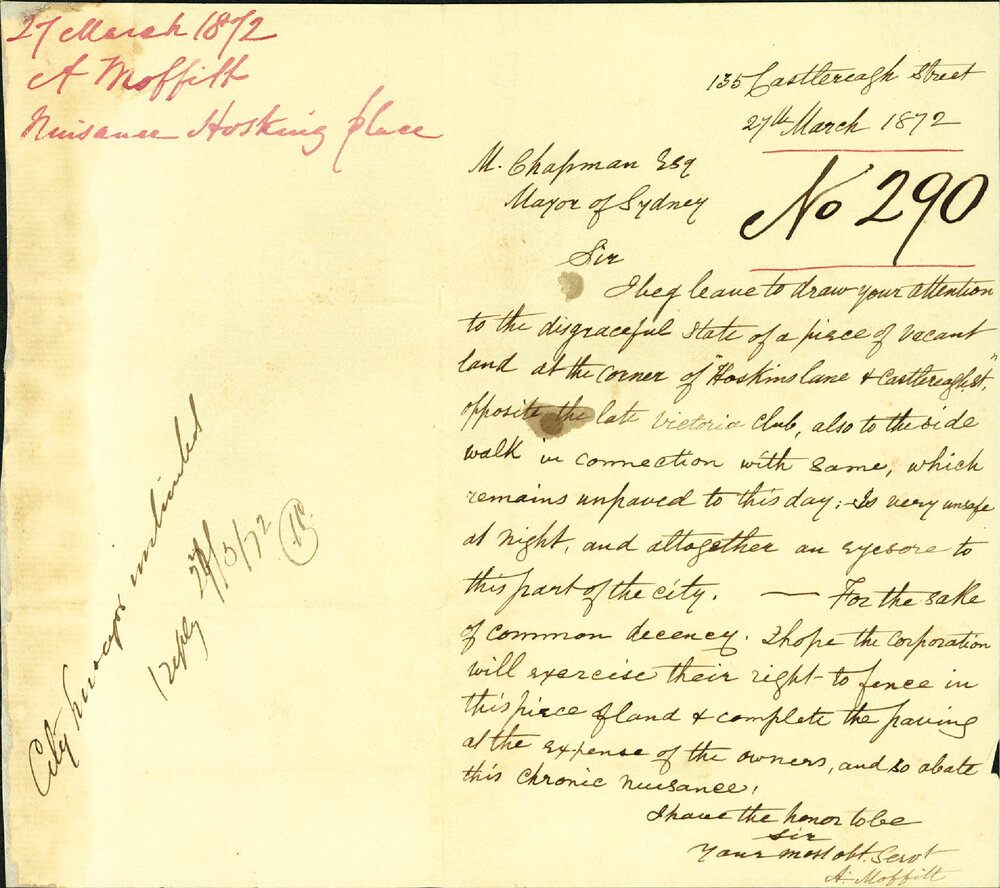 27 March 1872
A Moffitt
Nuisance Hosking place
135 Castlereagh Street
27th March 1872
No 290
M. Chapman Esq
Mayor of Sydney
Sir
I beg leave to draw your attention
to the disgraceful state of a piece of vacant
land at the corner of "Hoskins lane & Castlereagh St,"
opposite the late Victoria Club, also to the side
walk in connection with same, which
remains unpaved to this day; Is very unsafe
at night, and altogether an eyesore to
this part of the city. — For the sake
of common decency. I hope the corporation
will exercise their right to fence in
this piece of land & complete the paving
at the expense of the owners, and so abate
this chronic nuisance,
I have the honor to be
Sir
Your most obt. Servt
A. Moffitt
City Surveyor
reply 28/3/72